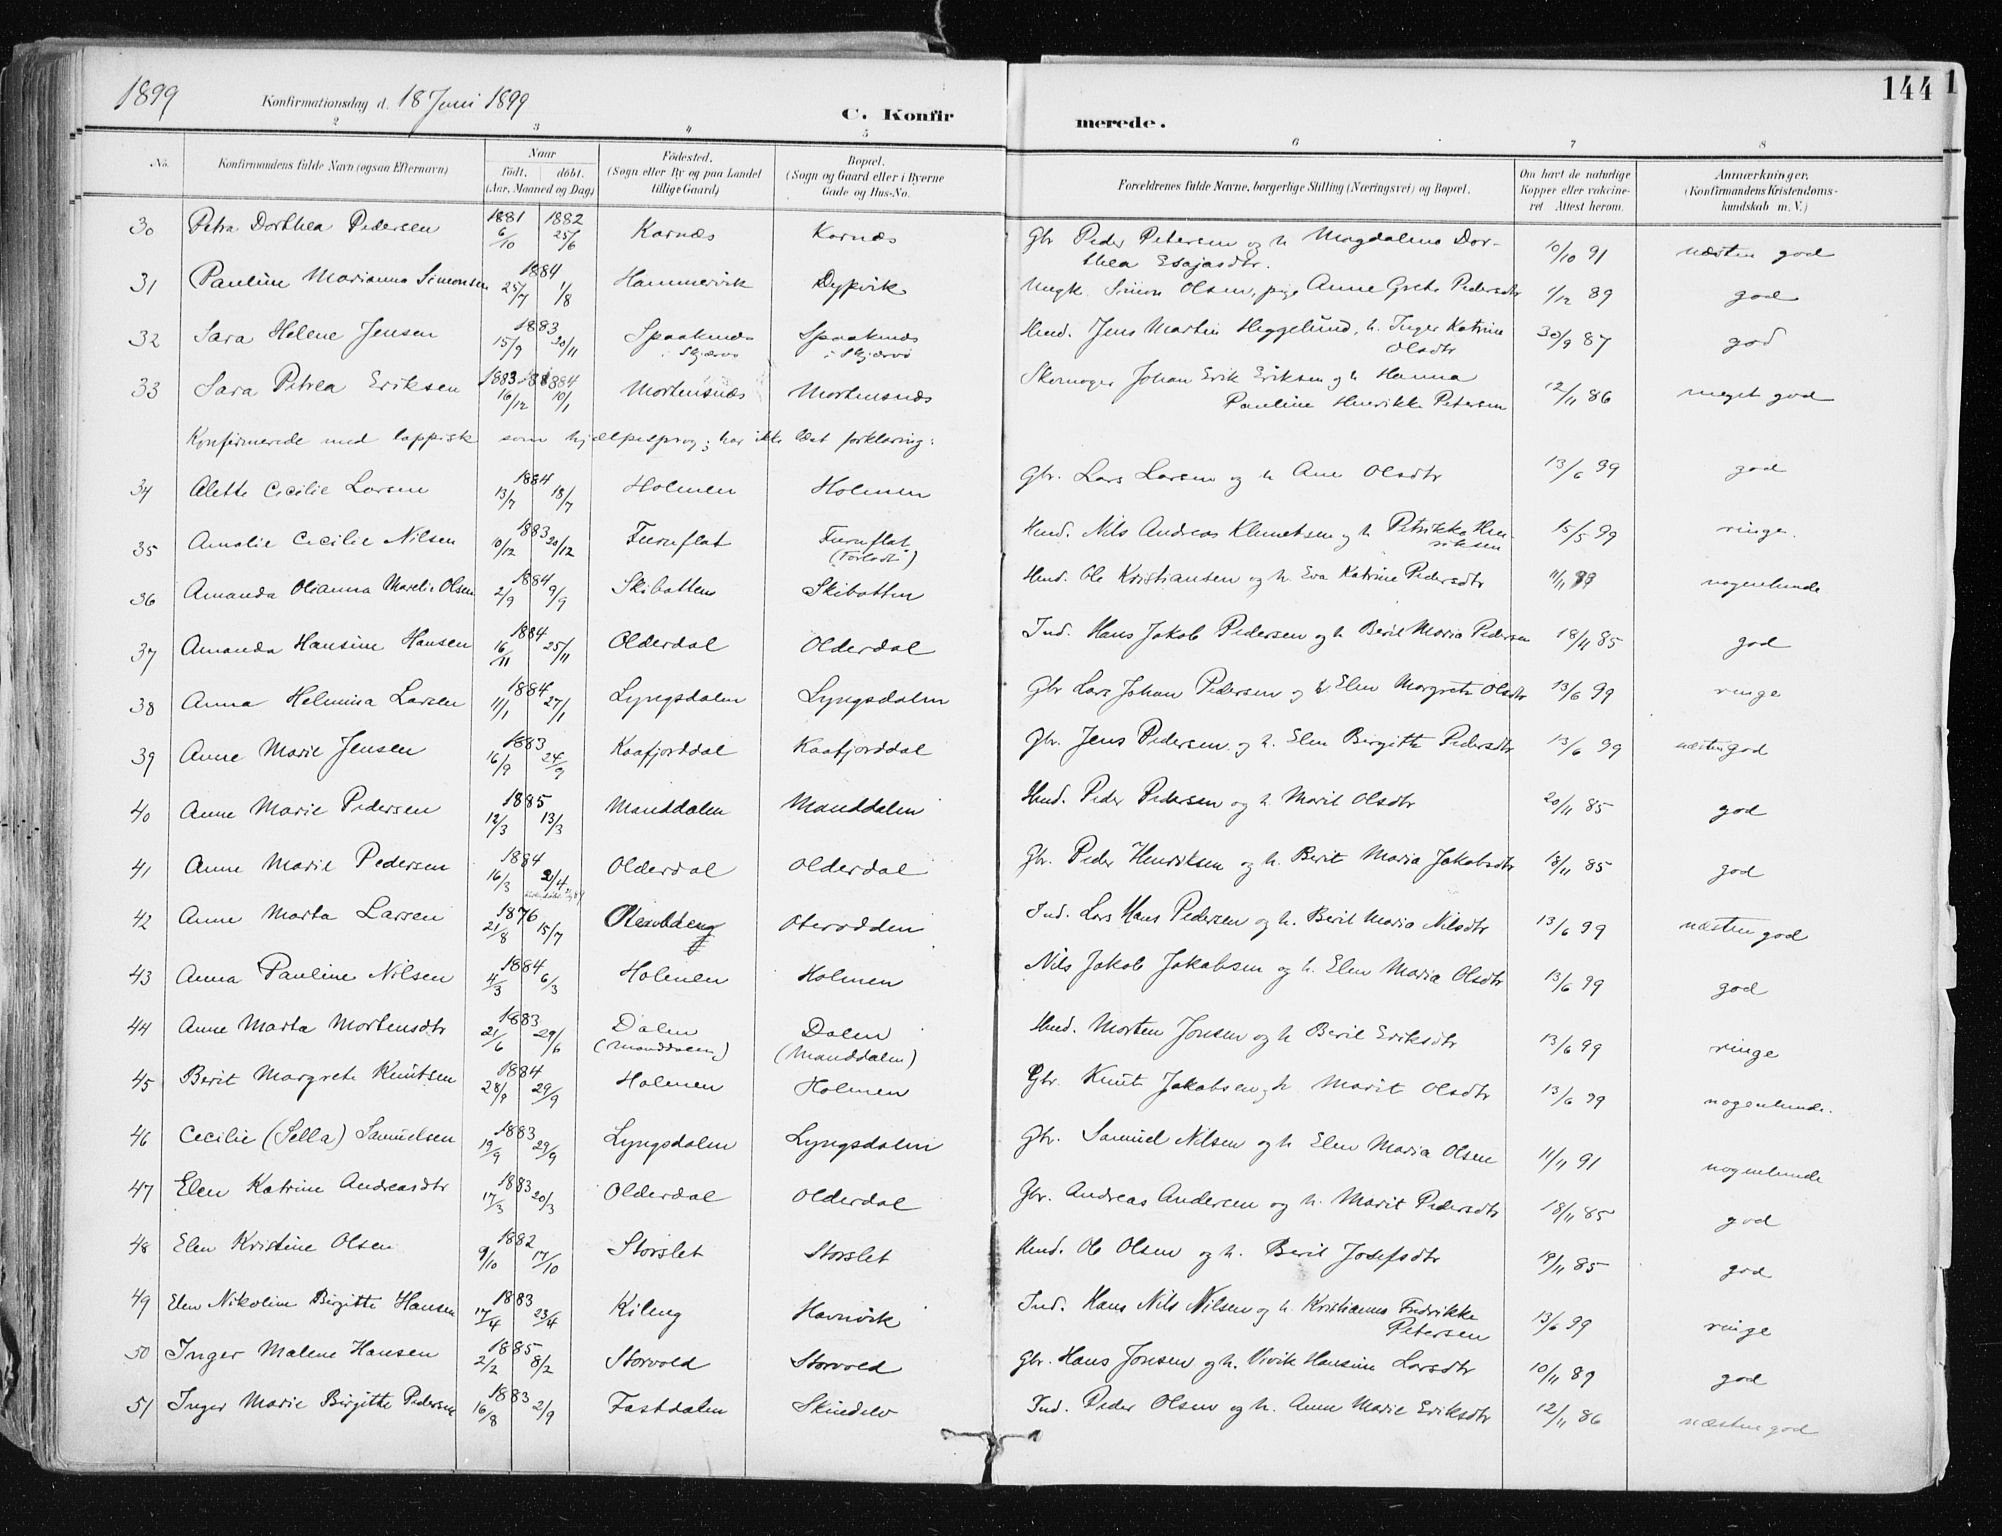 1899 Konfirmationsdag d. 18 Juni 1899
C. Konfirmerede.
144
2 3 4 5 6 7 8
No. Konfirmandens fulde Navn (ogsaa Efternavn) Naar födt. döbt. (Aar, Maaned og Dag) Födested. (Sogn eller By og paa Landet tillige Gaard) Bopæl. (Sogn og Gaard eller i Byerne Gade og Hus-No. Forældrenes fulde Navne, borgerlige Stilling (Næringsvei) og Bopæl. Om havt de naturlige Kopper eller vakcineret Attest herom. Anmærkninger. (Konfirmandens Kristendomskundskab m. V.)
30 Petra Dorthea Pedersen 1881 6/10 1882 25/6 Karnæs Karnæs Gbr Peder Petersen og h. Magdalena Dorthea Esajasdtr. 10/10 91 næsten god
31 Pauline Marianna Simonsen 1884 25/7 1/8 Hammervik Dypvik Ungk. Simon Olsen, pige Anne Grete Pedersdtr 1/12 89 god
32 Sara Helene Jensen 1883 15/9 20/11 Spaaknæs i Skjærvø Spaaknæs i Skjærvø Hmd. Jens Martin Heggelund, h. Inger Katrine Olsdtr 30/9 87 god
33 Sara Petrea Eriksen 1883 16/12 1884 10/1 Mortensnæs Mortensnæs Skomager Johan Erik Eriksen og h Hanna Pauline Henrikke Petersen 12/11 86 meget god
Konfirmerede med lappisk som hjælpesprog; har ikke læst forklaring:
34 Alette Cecilie Larsen 1884 13/7 18/7 Holmen Holmen Gbr. Lars Larsen og h Ane Olsdtr 13/6 99 god
35 Amalie Cecilie Nilsen 1883 10/12 20/12 Furuflat Furuflat (Forladt) Hmd. Nils Andreas Klemetsen og h. Petrikke Henriksen 15/5 99 ringe.
36 Amanda Olianna Marelie Olsen 1884 2/9 9/9 Skibotten Skibotten Hmd. Ole Kristiansen og h. Eva Katrine Pedersdtr nogenlunde
37 Amanda Hansine Hansen 1884 16/11 25/11 Olderdal Olderdal Ind. Hans Jakob Pedersen og h Berit Maria Pedersen 18/11 85 god
38 Anna Helmina Larsen 1884 11/1 27/1 Lyngsdalen Lyngsdalen Gbr Lars Johan Pedersen og h Elen Margrete Olsdtr 13/6 99 ringe
39 Anne Marie Jensen 1883 16/9 24/9 Kaafjorddal Kaafjorddal Gbr. Jens Pedersen og h. Elen Birgitte Pedersdtr 13/6 99 næsten god
40 Anne Marie Pedersen 1885 12/3 13/3 Manddalen Manddalen Hmd. Peder Pedersen og h. Marit Olsdtr 20/11 85 god
41 Anne Marie Pedersen 1884 16/3 2/4 Olderdal Olderdal Gbr. Peder Henriksen og h. Berit Maria Jakobsdtr 18/11 85 god
42 Anne Marta Larsen 1876 21/8 15/7 Oterodden Ind. Lars Hans Pedersen og h. Berit Maria Nilsdtr 13/6 99 næsten god
43 Anna Pauline Nilsen 1884 4/3 6/3 Holmen Holmen Nils Jakob Jakobsen og h. Elen Maria Olsdtr 13/6 99 god
44 Anne Marta Mortensdtr 1883 21/6 29/6 Dalen (Manddalen) Dalen (Manddalen) Hmd. Morten Jonsen og h Berit Eriksdtr 13/6 99 ringe
45 Berit Margrete Knutsen 1884 28/9 29/9 Holmen Holmen Gbr. Knut Jakobsen og h. Marit Olsdtr 13/6 99 nogenlunde.
46 Cecilie (Sella) Samuelsen 1883 19/9 29/9 Lyngsdalen Lyngsdalen Gbr. Samuel Nilsen og h Elen Maria Olsen 11/11 91 nogenlunde
47 Elen Katrine Andreasdtr 1883 17/3 20/3 Olderdal Olderdal Gbr. Andreas Andersen og h. Marit Pedersdtr 18/11 85 god
48 Elen Kristine Olsen 1882 9/10 17/10 Storslet Storslet Hmd. Ole Olsen og h. Berit Josefsdtr 19/11 85 god
49 Elen Nikoline Birgitte Hansen 1883 17/4 23/4 Kileng Havnvik Ind. Hans Nils Nilsen og h. Kristianna Fredrikke Petersen 13/6 99 ringe
50 Inger Malene Hansen 1885 2/2 8/2 Storvold Storvold Gbr. Hans Jonsen og h. Vivik Hansine Larsdtr 10/11 89 god
51 Inger Marie Birgitte Pedersen 1883 16/8 2/9 Fastdalen Skindelv Ind. Peder Olsen og h. Anne Marie Eriksdtr 12/11 86 næsten god